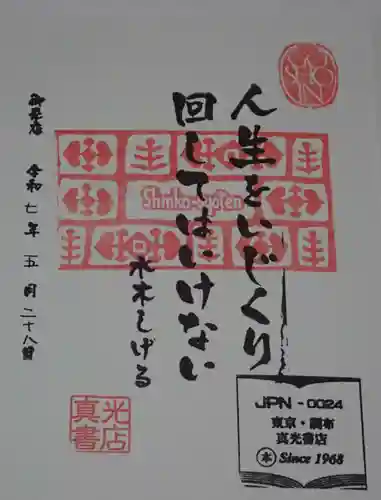 人生をいじくり
回してはいけない
水木しげる
御来店 令和七年 五月二十八日
Shinko-Syoten
真光
書店
JPN - 0024
東京・調布
真光書店
本 Since 1968